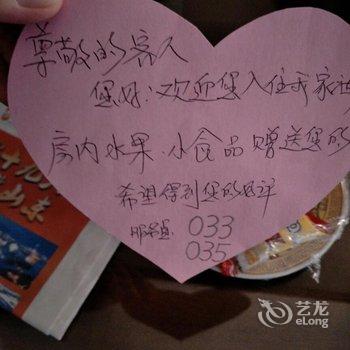 尊敬的客人
您好:欢迎您入住我家
房内水果、小食品赠送您的
希望得到您的好评
服务员: 033
035
山东
艺龙
eLong